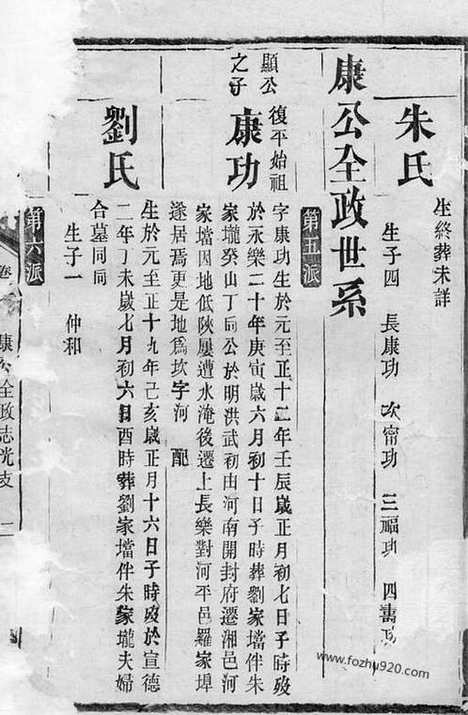 朱氏
生終葬未詳
生子四 長康功 次甯功 三福功 四壽功
康公全政世系
第五派
顯公之子
復平始祖
康功
字康功生於元至正十二年壬辰歲正月初七日子時歿
於永樂二十年庚寅歲六月初十日子時葬劉家壋伴朱
家壠癸山丁向公於明洪武初由河南開封府遷湘邑河
家壋因地低陝屢遭水淹後遷上長樂對河平邑羅家埠
遂居焉更是地為坎字河 配
劉氏
生於元至正十九年己亥歲正月十六日子時歿於宣德
二年丁未歲七月初六日酉時葬劉家壋伴朱家壠夫婦
合墓同向
生子一 仲和
第六派
卷
康公全政志光支
二
www.fozhu920.com